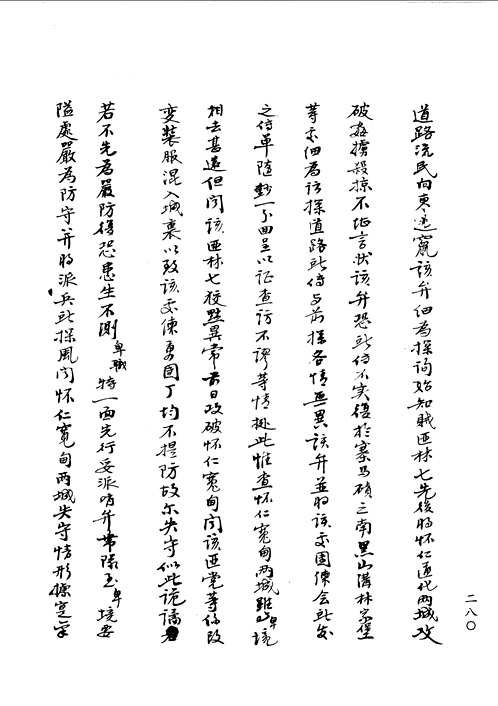 道路流民向東逃竄該弁細為探詢始知賊匪林七先後將懷仁通化兩城攻
破姦擄殺掠不堪言狀該弁恐所傳不實複於寨馬磧之南黑山溝林家堡
等處細為訪探道路所傳與前探各情無異該弁並將該處團練會所發
之傳單隨鈔一帋回呈以証查訪不謬等情據此惟查懷仁寬甸兩城雖與卑境
相去甚遠但聞該匪林七狡黠異常前日攻破懷仁寬甸聞該匪黨等係改
變裝服混入城裏以致該處練勇團丁均不提防故尔失守似此詭譎
若不先為嚴防後恐患生不測卑職特一面先行妥派哨弁帶隊至卑境要
隘處嚴為防守並將派兵所探風聞懷仁寬甸兩城失守情形據實
二八〇